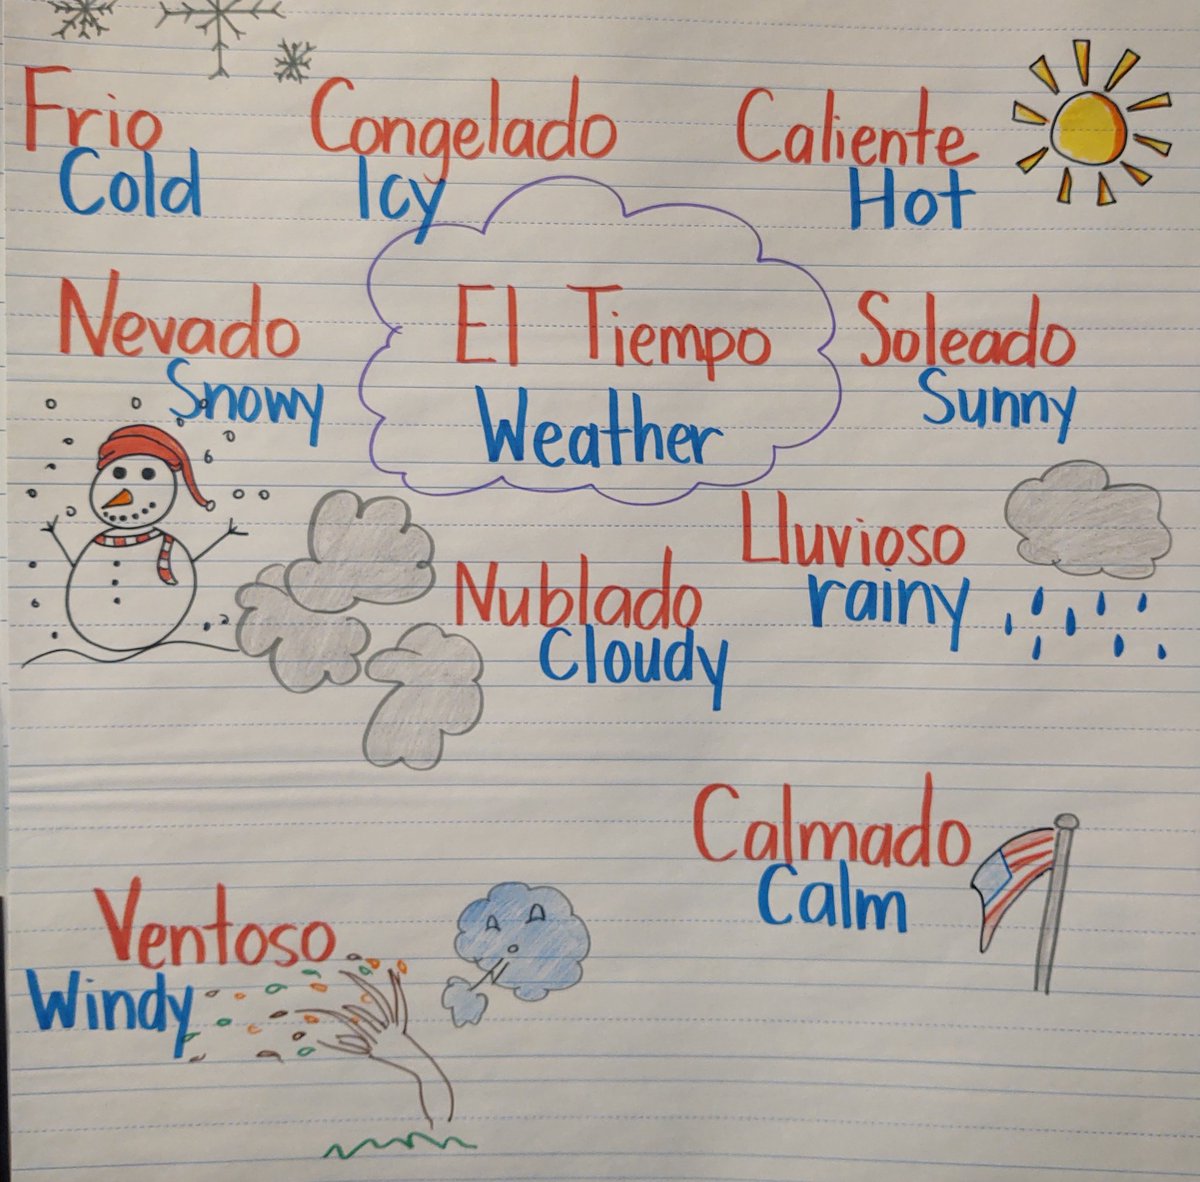 Frio
Cold
Congelado
Icy
Caliente
Hot
Nevado
Snowy
El Tiempo
Weather
Soleado
Sunny
Nublado
Cloudy
Lluvioso
rainy
Calmado
Calm
Ventoso
Windy